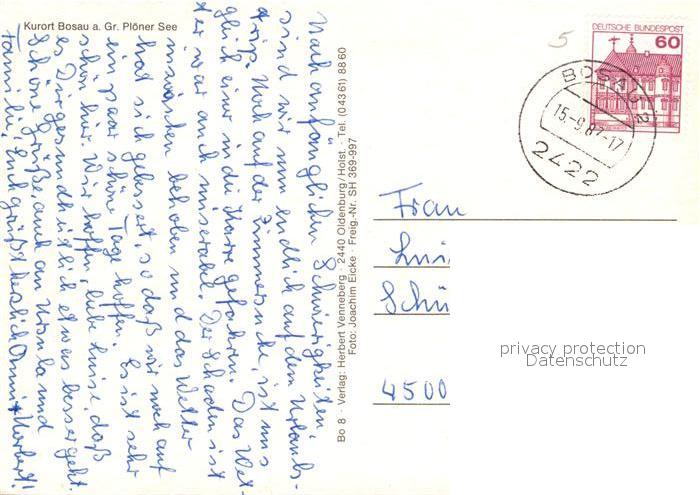 Kurort Bosau a. Gr. Plöner See
Nach anfänglichen Schwierigkeiten
sind wir nun endlich auf dem Urlaubs-
trip. Noch auf der Zimmersuche, ist uns
gleich einer in die Karre gefahren. Das Wet-
ter war auch miserabel. Der Schaden ist
inzwischen behoben und das Wetter
hat sich gebessert, so daß wir noch auf
ein paar schöne Tage hoffen. Es ist sehr
schön hier. Wir hoffen, liebe Luise, daß
es Dir gesundheitlich etwas besser geht.
Schöne Grüße auch an Ursula und
Familie. Euch grüßt herzlich Anni + Norbert!
Bo 8 · Verlag: Herbert Venneberg · 2440 Oldenburg/Holst. · Tel. (04361) 8860
Foto: Joachim Eicke · Freig.-Nr. SH 369-997
5
DEUTSCHE BUNDESPOST
60
BOSAU 2
15.-9.87-17
2422
Frau
Lui
Schü
4500
privacy protection
Datenschutz